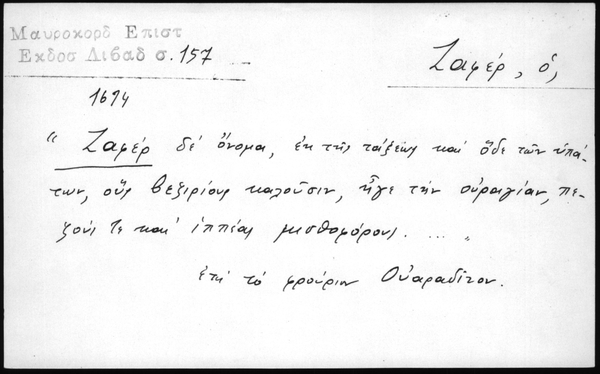 Μαυροκορδ Επιστ
Εκδοσ Λιβαδ σ. 157
Ζαφέρ, ὁ,
1694
“ Ζαφέρ δέ ὄνομα, ἐκ τῆς τάξεως καί ὅδε τῶν ὑπά-
των, οὕς Βεζιρίους καλοῦσιν, ἦγε τήν οὐραγίαν, πε-
ζούς τε καί ἱππέας μισθοφόρους. ... „
ἐπί τό φρούριον Οὐαραδῖνον.